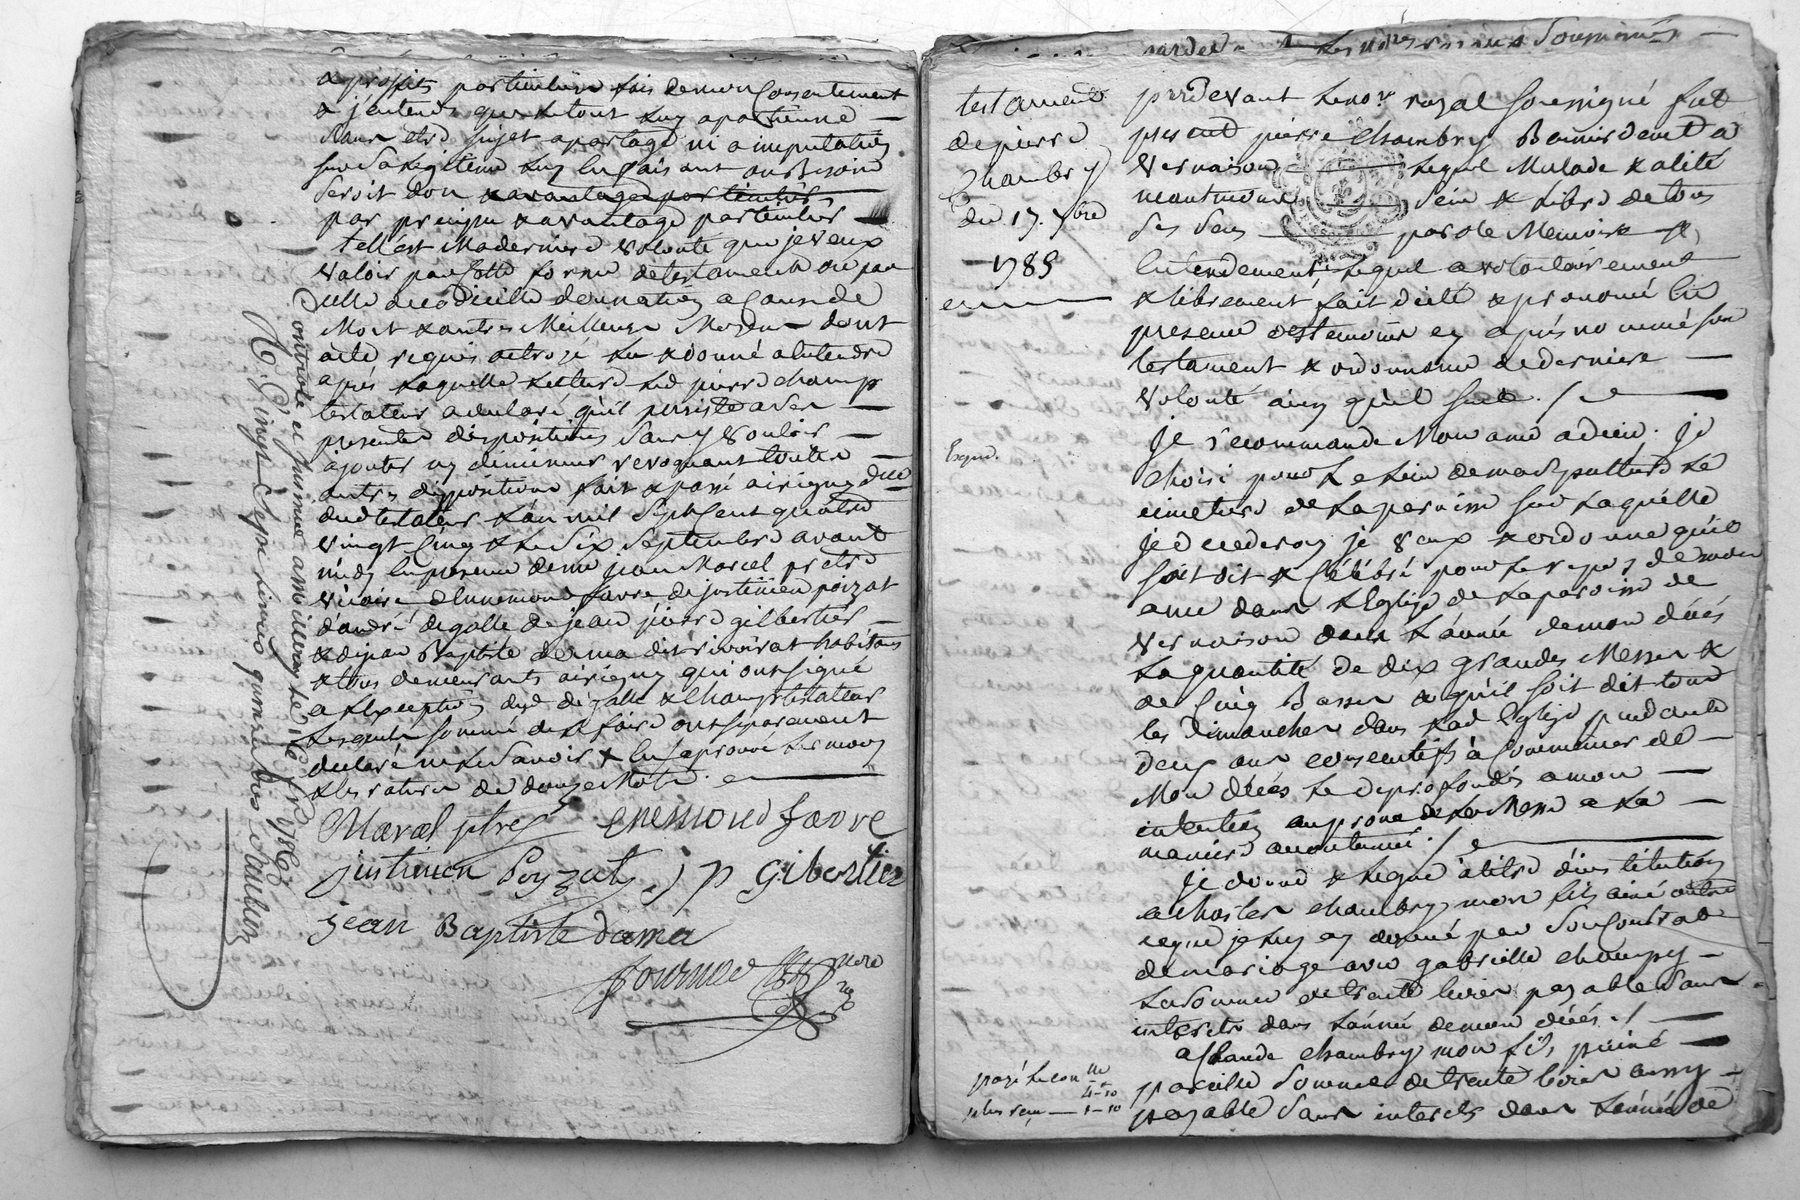 & profits particuliers fais de mon Consentement
& j'entends que le tout luy apartienne —
sans etre sujet a partage ni a imputation
sur sa legitime luy en faisant ou Besoin
seroit don & avantage particulier
par preciput & avantage particulier —
tell'est Ma derniere volonté que je veux
valoir par Cette forme de testament ou par
celle de codicille donnation a Cause de
Mort & autres Meilleurs Moyens dont
acte requis octroyé lu & donné a entendre
apres laquelle lecture led pierre champ
testateur a declaré qu'il persiste a ses —
presentes dispositions sans y vouloir —
ajouter ny diminuer revoquant toutes —
autres dispositions fait & passé a irigny dlle
dud testateur l'an mil sept Cent quatre
vingt Cinq & le six septembre avant
midy en presence de mr jean Marcel pretre
vicaire d'Ennemond favre de justinien poizat
d'andré degalle de jean pierre gilbertier —
& de jean Baptiste dema dit rivoirat habitans
& tous demeurants a irigny qui ont signé
a l'exception dud degalle & Champ testateur
lesquels sommé de le faire ont separement
declaré ne le savoir & en Ca prouvé les mots
& les ratures de douze Mots. —
Marcel ptre enemond favre
justinien Poyzat J p Gibertier
jean Baptiste dama
fournier nore
Controlé et
R. Vingt Sept
testament
de pierre
Chambry
du 17. 7bre
1785
Exped.
pardevant le nore royal soussigné fut
present pierre Chambry Bannis demt a
vernaison lequel Malade & alité
neantmoins sein & libre de tous
ses sens parole Memoire &
Entendement, lequel a volontairement
& librement fait dicté & prononcé En
presence des temoins cy après nommé son
testament & ordonnance de derniere —
volonté ainsy qu'il suit. / —
je recommande Mon ame a dieu. je
choisi pour Le Lieu de ma sepulture Le
cimetiere de La paroisse sur Laquelle
je decederay je veux & ordonne qu'il
soit dit & Célébré pour Le repos de mon
ame dans L'Eglise de La paroisse de
vernaison dans L'année de mon décés
La quantité de dix grandes Messes &
de Cinq Basses & qu'il soit dit tous
les dimanches dans Lad Eglise pendant
deux ans consecutifs à Commencer de —
Mon décés Le de profondis a mon —
intention au prone de La Messe a La —
maniere accoutumée. / —
Je donne & Legue à titre d'institution
a charles chambry mon fils ainé outre
ceque je luy ay donné par son Contrat
de mariage avec gabrielle champy —
La somme de trente livres payable sans
interets dans L'année de mon décés. / —
a Claude chambry mon fils puiné —
pareille somme de trente livres aussy —
payable sans interets dans L'année de
4-10
1-10